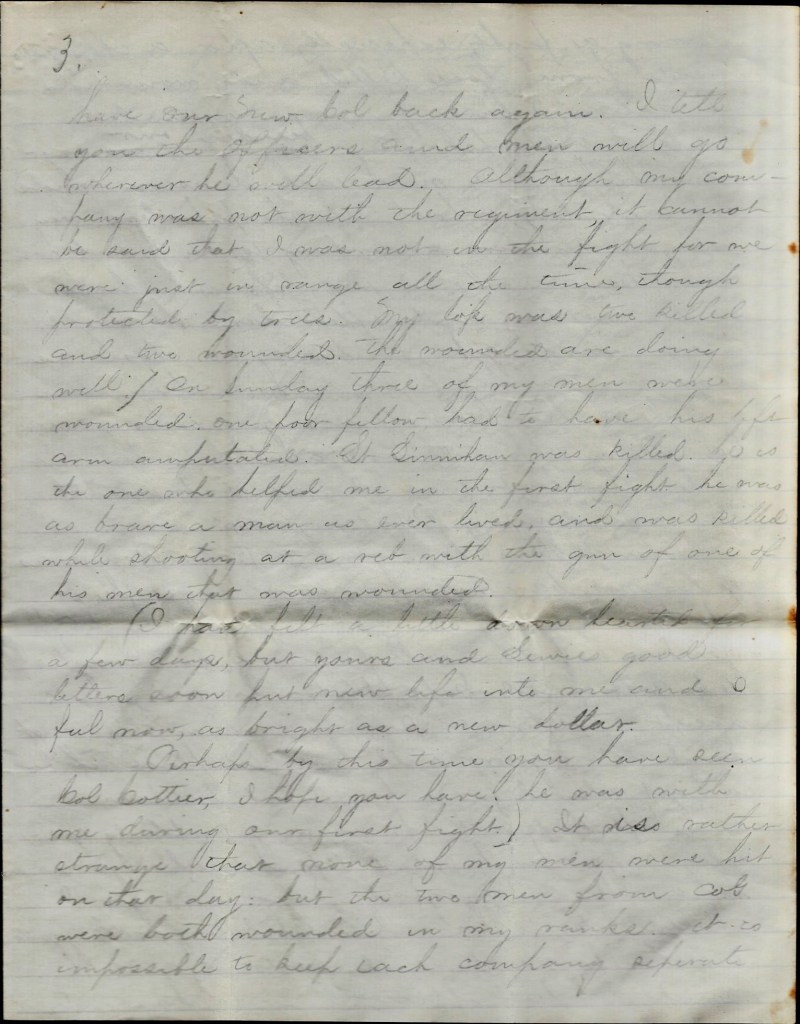 3.
have our new Col back again. I tell
you the officers and men will go
wherever he will lead. Although my com-
pany was not with the regiment, it cannot
be said that I was not in the fight for we
were just in range all the time, though
protected by trees. My loss was two killed
and two wounded. The wounded are doing
well. / On Sunday three of my men were
wounded. one poor fellow had to have his left
arm amputated. Lt was killed. He is
the one who helped me in the first fight he was
as brave a man as ever lived, and was killed
while shooting at a reb with the gun of one of
his men that was wounded.
(I had felt a little down hearted for
a few days, but yours and good
letters soon put new life into me and I
ful now, as bright as a new dollar.
Perhaps by this time you have seen
Col Cottier, I hope you have. he was with
me during our first fight) It is rather
strange that none of my men were hit
on that day: but the two men from Co G
were both wounded in my ranks. it is
impossible to keep each company seperate